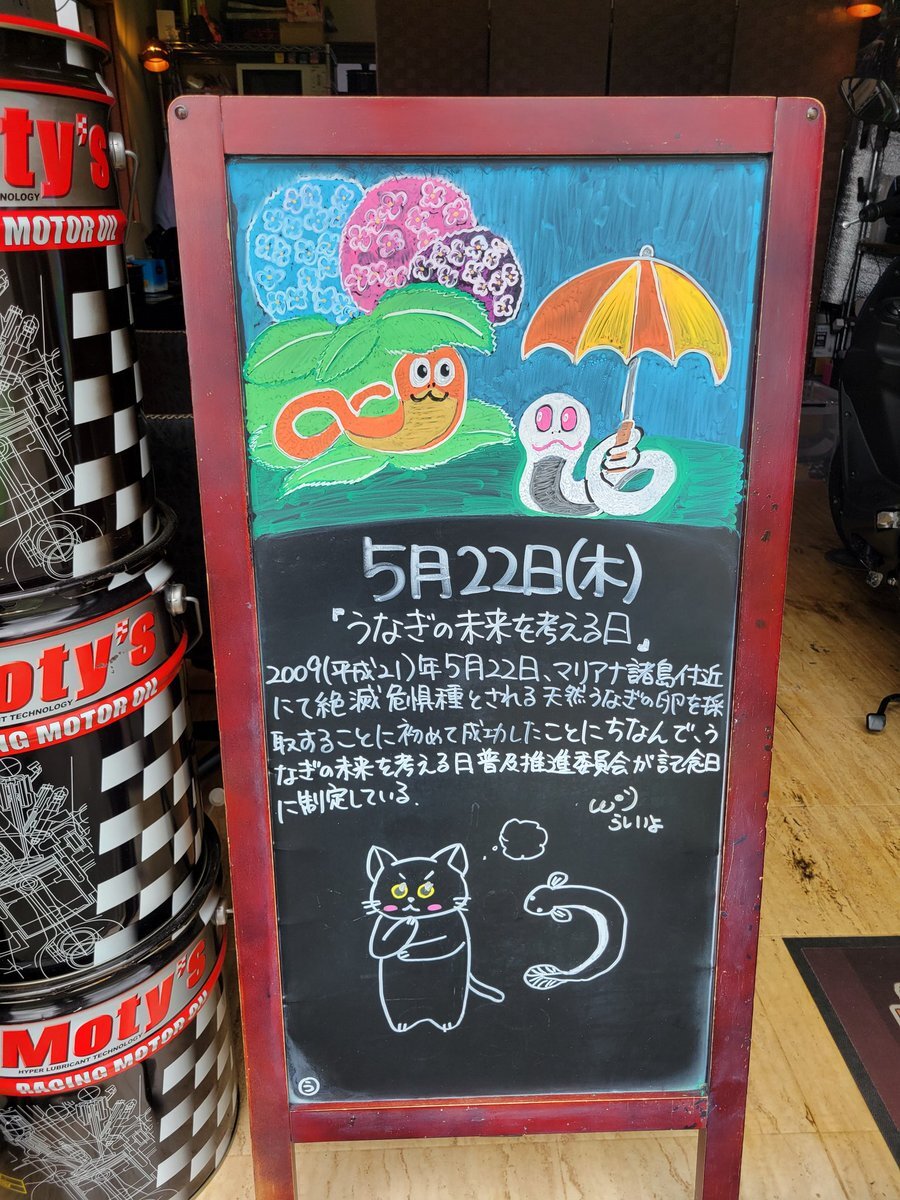 5月22日(木)
『うなぎの未来を考える日』
2009(平成21)年5月22日、マリアナ諸島付近
にて絶滅危惧種とされる天然うなぎの卵を採
取することに初めて成功したことにちなんで、う
なぎの未来を考える日普及推進委員会が記念日
に制定している.
らいよ
う
oty's
NOLOGY
MOTOR OIL
oty's
NT TECHNOLOGY
NG MOTOR OIL
Moty's
HYPER LUBRICANT TECHNOLOGY
RACING MOTOR OIL